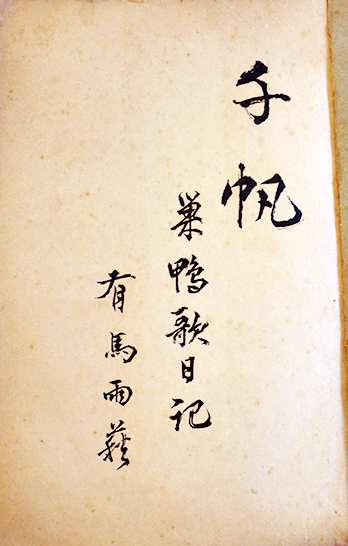 千帆
巣鴨歌日記
有馬雨藪